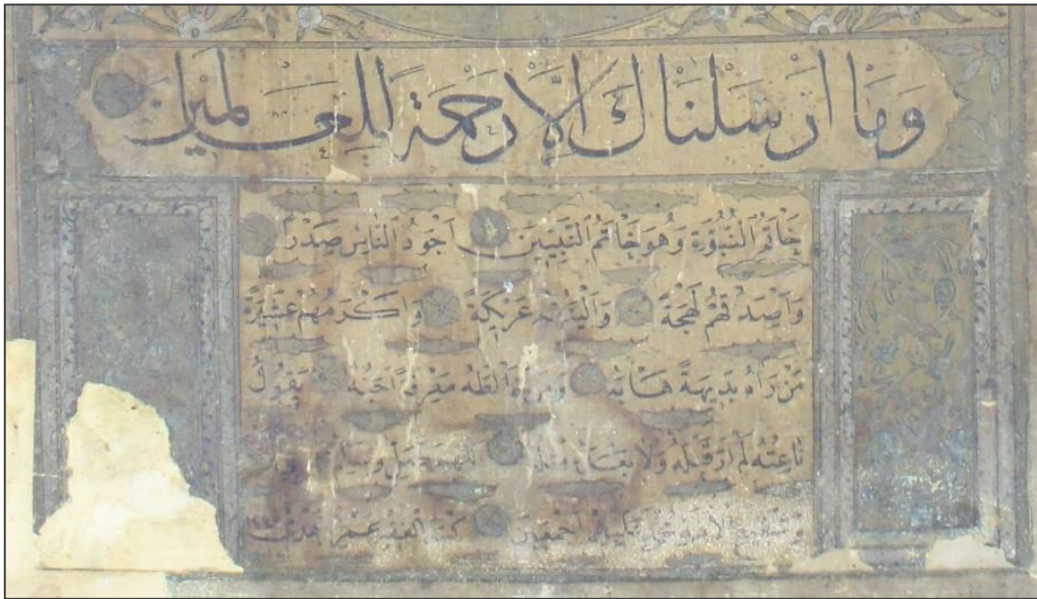 وَمَا أَرْسَلْنَاكَ إِلَّا رَحْمَةً لِلْعَالَمِينَ
خَاتَمُ النُّبُوَّةِ وَهُوَ خَاتَمُ النَّبِيِّينَ أَجْوَدُ النَّاسِ صَدْرًا
وَأَصْدَقُهُمْ لَهْجَةً وَأَلْيَنُهُمْ عَرِيكَةً وَأَكْرَمُهُمْ عَشِيرَةً
مَنْ رَآهُ بَدِيهَةً هَابَهُ وَمَنْ خَالَطَهُ مَعْرِفَةً أَحَبَّهُ يَقُولُ
نَاعِتُهُ لَمْ أَرَ قَبْلَهُ وَلَا بَعْدَهُ مِثْلَهُ اللهم صل وسلم
أجمعين